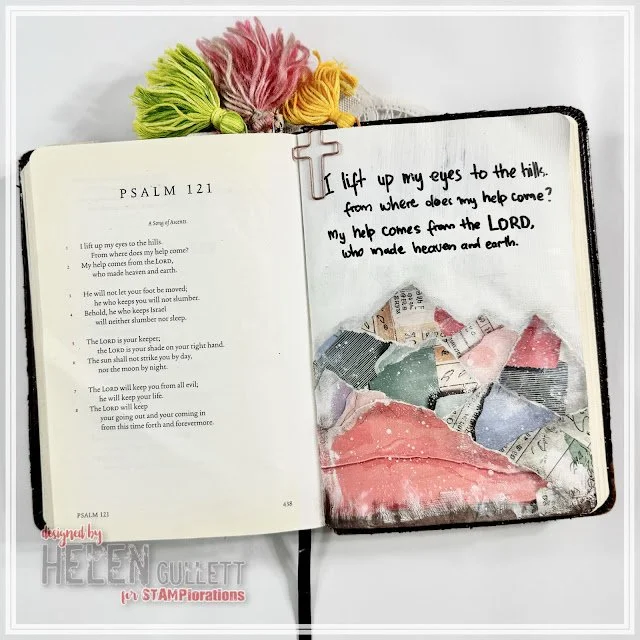 PSALM 121
A Song of Ascents.
1 I lift up my eyes to the hills.
From where does my help come?
2 My help comes from the LORD,
who made heaven and earth.
3 He will not let your foot be moved;
he who keeps you will not slumber.
4 Behold, he who keeps Israel
will neither slumber nor sleep.
5 The LORD is your keeper;
the LORD is your shade on your right hand.
6 The sun shall not strike you by day,
nor the moon by night.
7 The LORD will keep you from all evil;
he will keep your life.
8 The LORD will keep
your going out and your coming in
from this time forth and forevermore.
PSALM 121
438
I lift up my eyes to the hills.
from where does my help come?
My help comes from the LORD,
who made heaven and earth.
designed by
HELEN GULLETT
for STAMPlorations